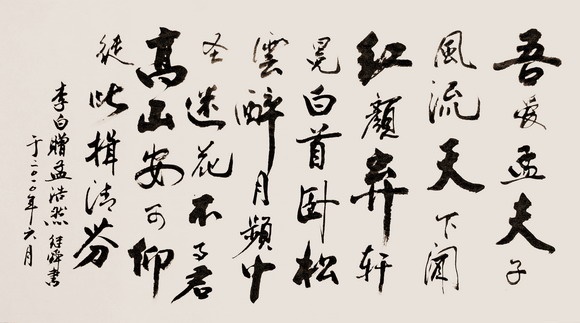 吾爱孟夫子
風流天下闻
红顏弃轩
冕白首卧松
雲醉月頻中
圣迷花不事君
高山安可仰
徒此揖清芬
李白贈孟浩然 書
于二〇二〇年六月